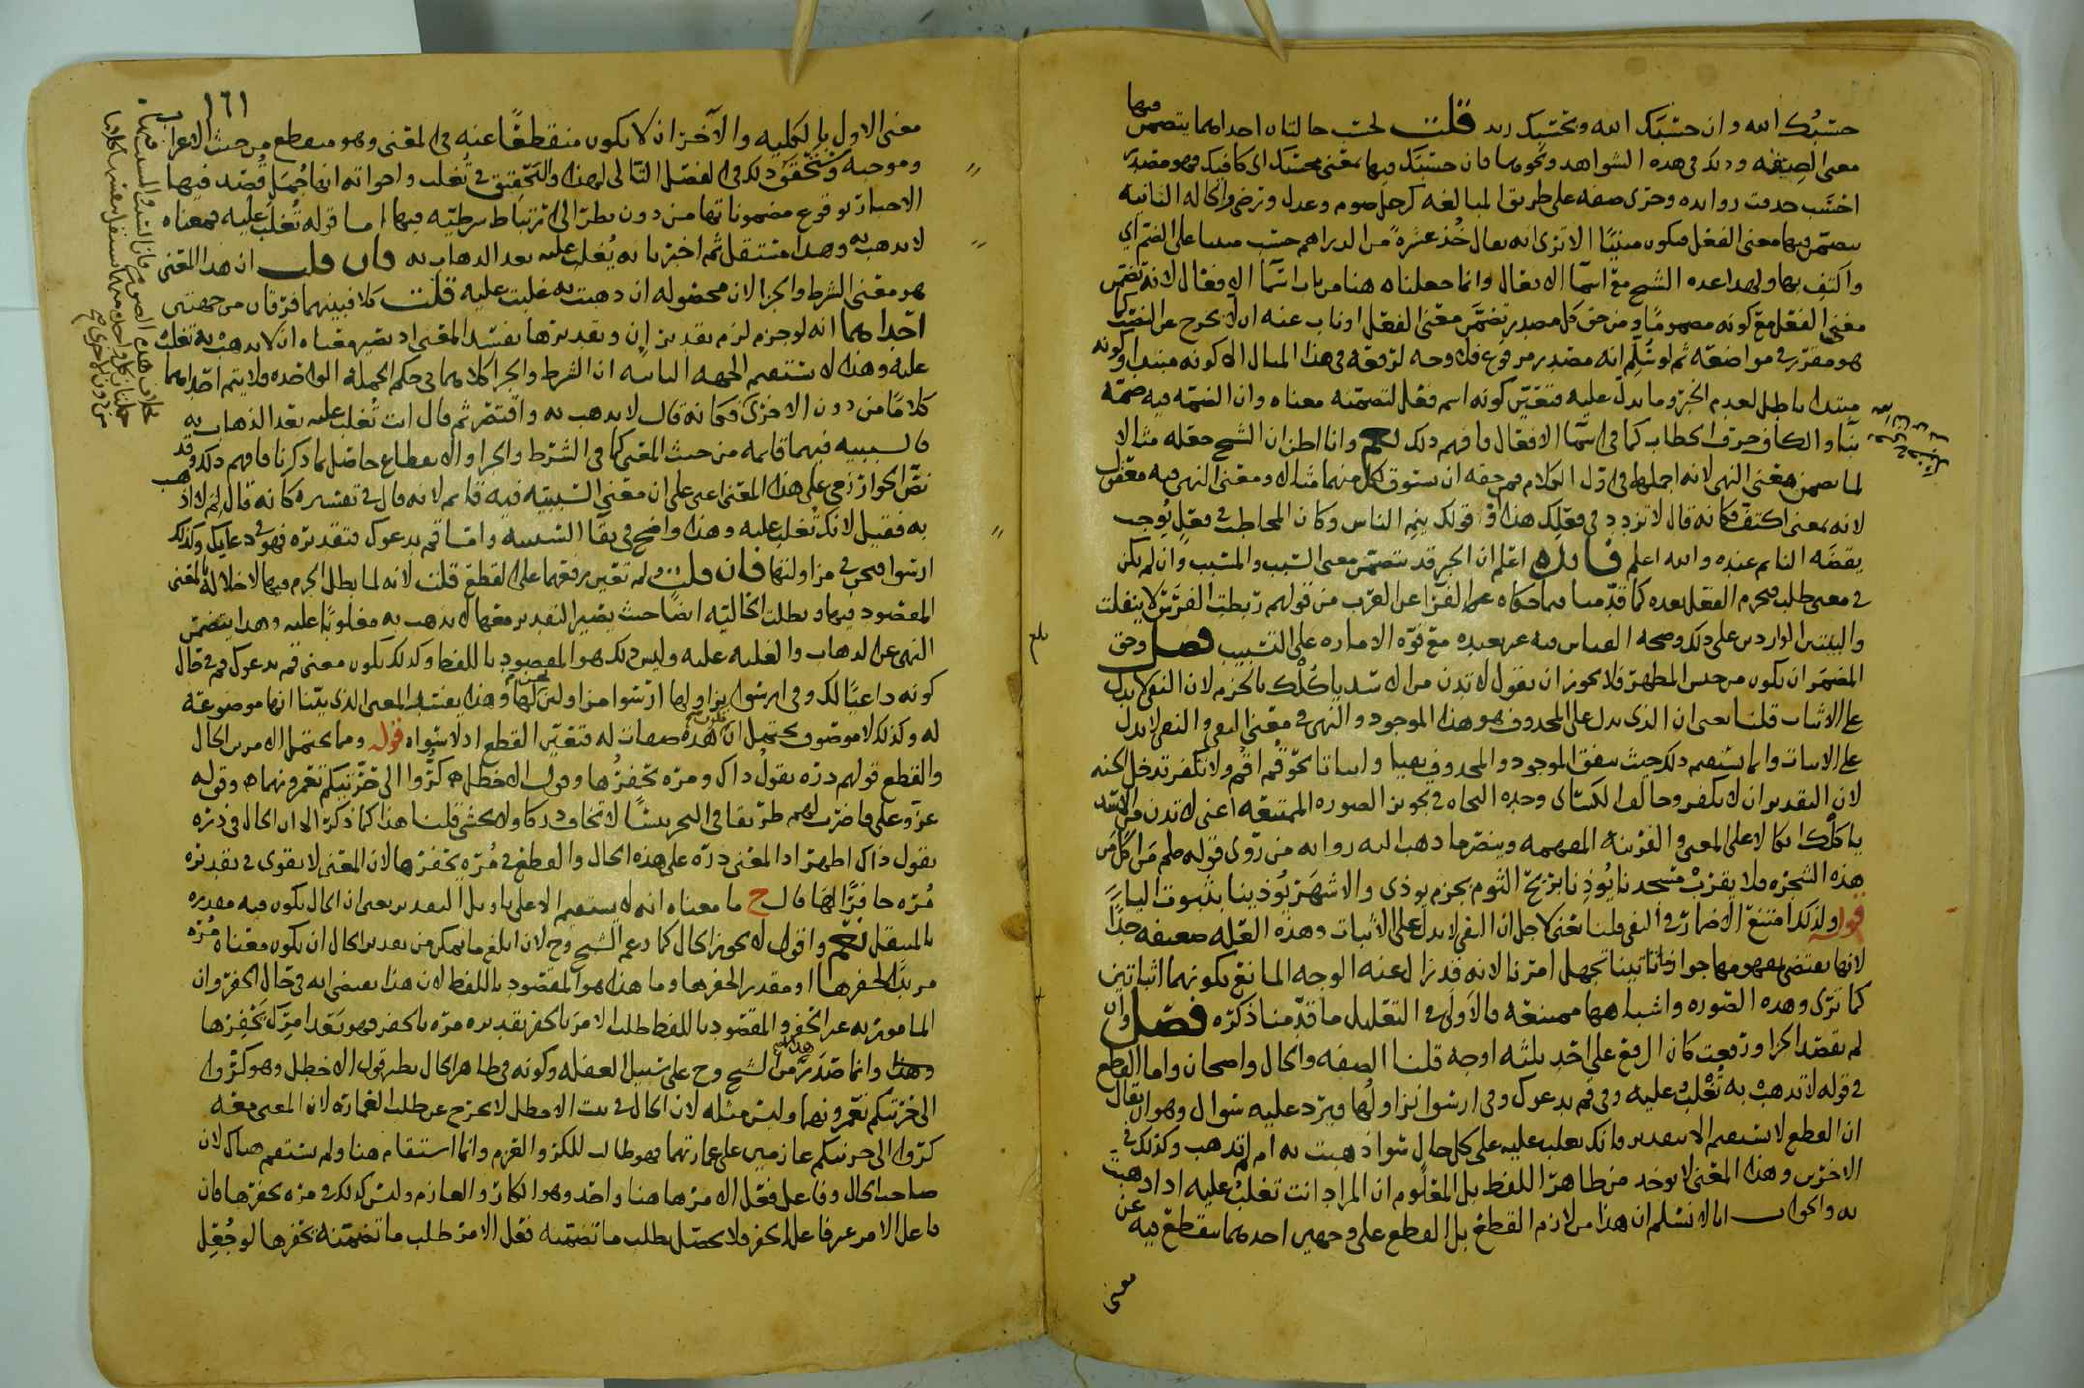 حسبك الله وان حسبك الله وبحسبك زيد قلت لحسب حالتان احداهما يتضمن فيها
معنى الصيغة وذلك في هذه الشواهد ونحوها فان حسبك فيها بمعنى محسبك اي كافيك فهو مصدر
احسب حذفت زوائده وجرى صفة على طريق المبالغة كرجل صوم وعدل ورضى والحالة الثانية
يتضمن فيها معنى الفعل فيكون مبنيا الا ترى انه يقال خذ عشرة من الدراهم حسب مبنيا على الضم اي
واكتف بها ولهذا عده الشيخ مع اسما الافعال وانما جعلناه هنا من باب اسما الافعال لانه تضمن
معنى الفعل مع كونه مضموما ومن حق كل مصدر تضمن معنى الفعل او ناب عنه ان لا يخرج عن النصب كما
هو مقرر في مواضعه ثم لو سلم انه مصدر مرفوع فلا وجه لرفعه في هذا المثال الا كونه مبتدا وكونه
مبتدا باطل لعدم الخبر وما يدل عليه فتعين كونه اسم فعل لتضمنه معناه وان الضمة فيه ضمة
بنا والكاف حرف الخطاب كما في اسما الافعال فافهم ذلك نعم وانا اظن ان الشيخ جعله مثالا
لما تضمن معنى النهي لانه اجملها في اول الكلام فمن حقه ان يستوفي لكل منهما مثاله ومعنى النهي فيه
لانه بمعنى اكتف فكانه قال لا تزدد في فعلك هذا اذ قولك ينم الناس وكان المخاطب في فعل يوجب
يقظة النايم عنده والله اعلم فايدة اعلم ان الخبر قد يتضمن معنى السبب والمسبب وان لم يكن
في معنى طلب فيجزم الفعل بعده كما قدمنا فيما حكاه الفرا عن العرب من قولهم ربطت الفرس لا ينفلت
والبيتين الواردين على ذلك وصحة القياس فيه غير بعيدة مع قوة الامارة على التسبيب فصل وحق
المضمر ان يكون من جنس المظهر فلا يجوز ان تقول لا تدن من الاسد ياكلك بالجزم لان النفي لا يدل
على الاثبات قلنا يعني ان الذي يدل على المحذوف هو هذا الموجود والنهي في معنى النفي والنفي لا يدل
على الاثبات وانما يستقيم ذلك حيث يتفق الموجود والمحذوف نفيا واثباتا نحو قم اقم ولا تكفر تدخل الجنة
لان التقدير ان لا تكفر وخالف الكسائي وحده النحاة في تجويز الصورة الممتنعة اعني لا تدن من الاسد
ياكلك اتكالا على المعنى والقرينة المفهمة وينصر ما ذهب اليه رواية من روى قوله صلعم من اكل من
هذه الشجرة فلا يقرب مسجدنا يوذنا بريح الثوم بجزم يوذي والاشهر يوذينا بثبوت اليا
قوله ولذلك امتنع الاضمار في النفي قلنا يعني لاجل ان النفي لا يدل على الاثبات وهذه العلة ضعيفة جدا
لانها تقتضي بمفهومها جواز ما تاتينا تجهل امرنا لانه قد زال عنه الوجه المانع بكونهما اثباتين
كما ترى وهذه الصورة واشباهها ممتنعة فالاولى في التعليل ما قدمنا ذكره فصل وان
لم تقصد الجزا ورفعت كان الرفع على احد ثلثة اوجه قلنا الصفة والحال واضحان واما القطع
في قوله لا تذهب به تغلب عليه وفي قم يدعوك وفي ارسوا نزاولها ويرد عليه سوال وهو ان يقال
ان القطع لا يستقيم الا بتقدير فانك تغلب عليه على كل حال سوا ذهبت به ام لم تذهب وكذلك في
الاخرين وهذا المعنى لا يوخذ من ظاهر اللفظ بل المعلوم ان المراد انت تغلب عليه اذا ذهبت
به والجواب انا لا نسلم ان هذا من لازم القطع بل القطع على وجهين احدهما ينقطع فيه عن
معنى
١٦١
معنى الاول بالكلية والآخر ان لا يكون منقطعا عنه في المعنى وهو منقطع من حيث الاعراب
وموجبه وتحقق ذلك في الفصل التالي لهذا والتحقيق في تغلب واخواته انها جمل قصد فيها
الاخبار بوقوع مضموناتها من دون نظر الى ارتباط شرطية فيها اما قوله تغلب عليه فمعناه
لا تذهب به وهذا مستقل ثم اخبر بانه يغلب عليه بعد الذهاب به فان قلت ان هذا المعنى
هو معنى الشرط والجزا لان محصوله ان ذهبت به غلبت عليه قلت كلا فبينهما فرقان من جهتين
احداهما انه لو جزم لزم تقدير ان وتقديرها يفسد المعنى اذ يصير معناه ان لا تذهب به تغلب
عليه وهذا لا يستقيم الجهة الثانية ان الشرط والجزا كلاهما في حكم الجملة الواحدة ولا يتم احداهما
كلاما من دون الاخرى فكانه قال لا تذهب به واقتصر ثم قال انت تغلب عليه بعد الذهاب به
فالسببية فيهما قايمة من حيث المعنى كما في الشرط والجزا والانقطاع حاصل بما ذكرنا فافهم ذلك وقد
نص الخوارزمي على هذا المعنى اعني على ان معنى السببية فيه قايم لانه قال في تفسيره كانه قال لم لا اذهب
به فقيل لانك تغلب عليه وهذا واضح في بقا السببية واما قم يدعوك فتقديره فهو في دعايك وكذلك
ارسوا فنحن في مزاولتها فان قلت لم تعين رفعهما على القطع قلت لانه لما بطل الجزم فيها لاخلاله بالمعنى
المقصود فيها وبطلت الحالية ايضا حيث يصير التقدير معها لا تذهب به مغلوبا عليه وهذا يتضمن
النهي عن الذهاب والغلبة عليه وليس ذلك هو المقصود باللفظ وكذلك يكون معنى قم يدعوك قم في حال
كونه داعيا لك وفي ارسوا نزاولها ارسوا مزاولين لها وهذا يفسد المعنى الذي بينا انها موضوعة
له وكذلك لا موصوف يحتمل ان هذه صفات له فتعين القطع اذ لا سواه قوله ومما يحتمل الامرين الحال
والقطع قولهم ذره يقول ذاك ومره يحفرها وقول الاخطل كروا الى حرتيكم تعمرونهما وقوله
عز وعلى فاضرب لهم طريقا في البحر يبسا لا تخاف دركا ولا تخشى قلنا هذا كما ذكر الا ان الحال في ذره
يقول ذاك اظهر اذ المعنى ذره على هذه الحال والقطع في مره يحفرها لان المعنى لا يقوى في تقديره
مره حافرا لها قال ح ما معناه انه لا يستقيم الا على تاويل التقدير يعني ان الحال يكون فيه مقدره
بالمستقبل نعم واقول لا يجوز الحال كما زعم الشيخ وح لان ابلغ ما يمكن من تقدير الحال ان يكون معناه مره
مريدا لحفرها او مقدرا لحفرها وما هذا هو المقصود باللفظ لان هذا يقتضي انه في حال الحفر وان
المامور به غير الحفر والمقصود باللفظ طلب الامر بالحفر بتقديره مره بالحفر فهو بعد امرك يحفرها
وهذا وانما صدر من الشيخ وح على سبيل الغفلة وكونه في ظاهر الحال نظير قول الاخطل وهو كروا
الى حرتيكم تعمرونهما وليس مثله لان الحال في بيت الاخطل لا يخرج عن طلب العمارة لان المعنى معه
كروا الى حرتيكم عازمين على عمارتهما فهو طالب للكر والعزم وانما استقام هنا ولم يستقم هناك لان
صاحب الحال وفاعل فعل الامر هاهنا واحد وهو الكار والعازم وليس كذلك في مره يحفرها فان
فاعل الامر غير فاعل الحفر فلا يحصل بطلب ما تضمنه فعل الامر طلب ما تضمنه يحفرها لو جعل